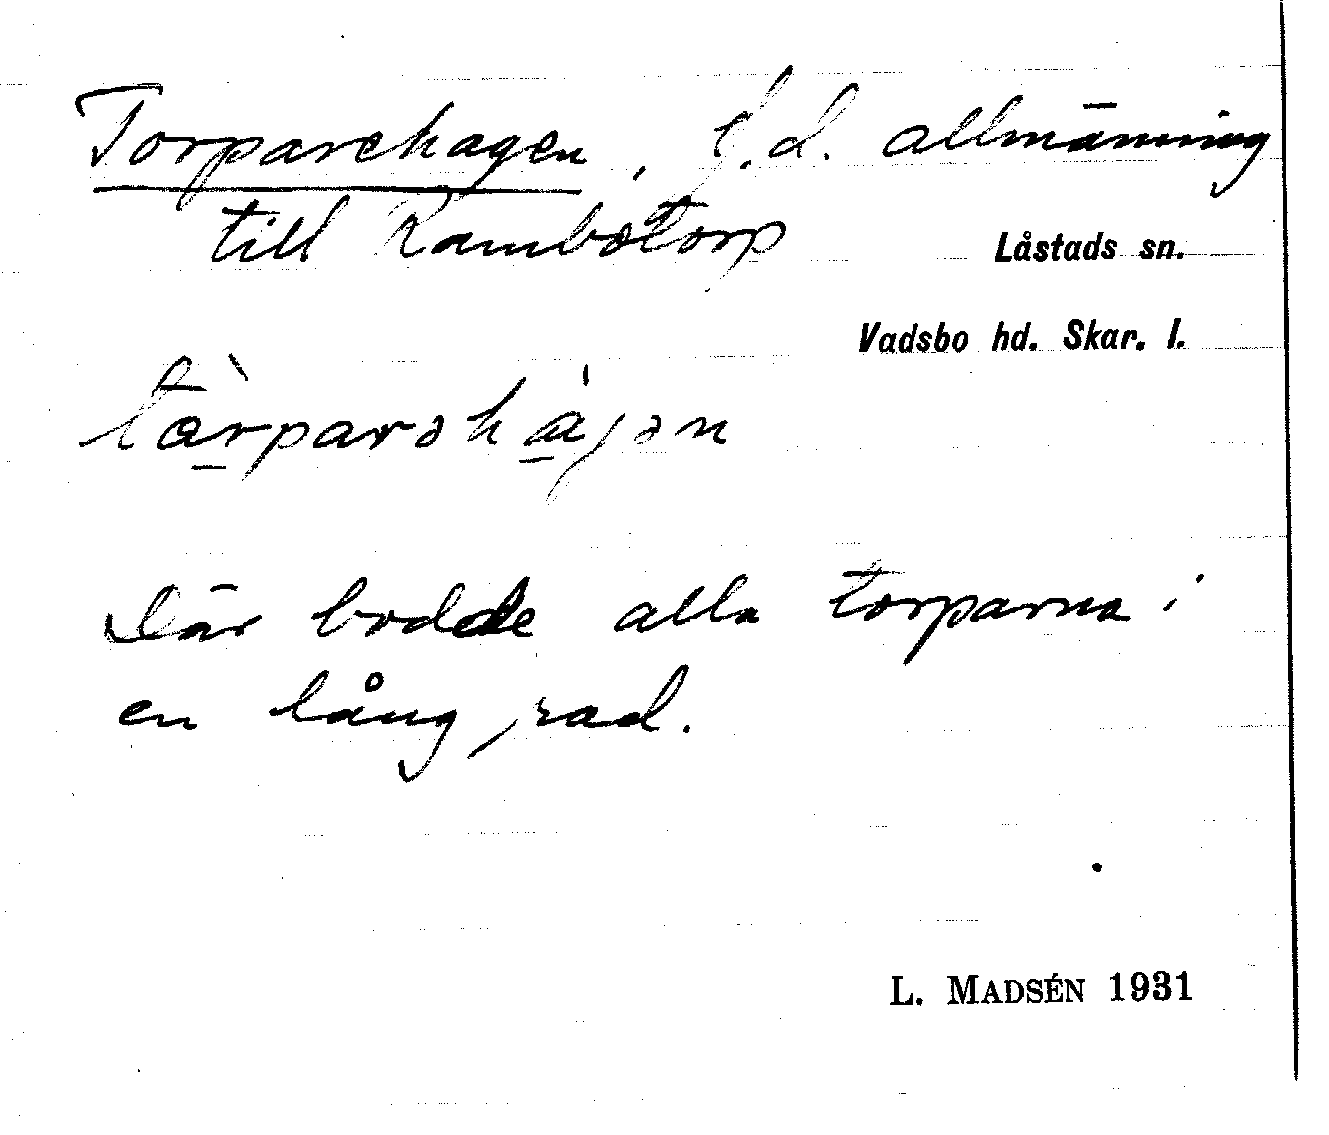 Torparehagen, f.d. allmänning
till Rambotorp
Låstads sn.
Vadsbo hd. Skar. l.
tàrparəhájən
Där bodde alla torparna i
en lång rad.
L. MADSÉN 1931